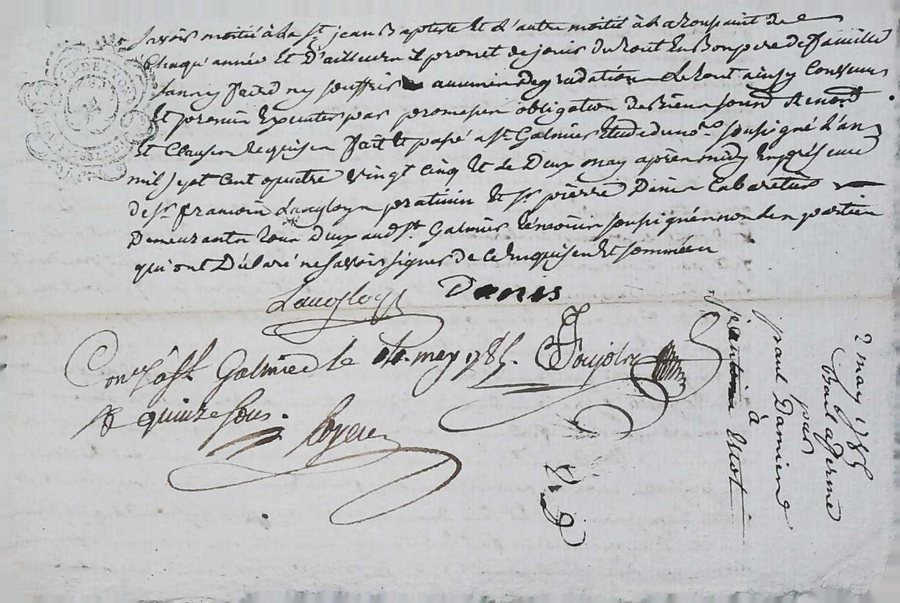 Savoir moitié à la st jean Baptiste et l'autre moitié à la toussaint de
Chaqu'année et D'ailleurs il promet de jouir du tout en Bon pere de famille
sans y faire ny souffrir aucunes degradations le tout ainsy Convenu
et promis executer par promesses obligation de Biens soumis Renonc
et Clauses Requises fait et passé a st Galmier Etude du no.re soussigné L'an
mil sept Cent quatre vingt Cinq et le Deux may après midy En présence
de sr françois Langloys praticien et sr pierre Denis Cabaretier
Demeurants tous Deux aud. st Galmier témoins soussignés non les parties
qui ont Déclaré ne savoir signer de ce Enquises et sommées
Langloys Denis
Con.lé à st Galmier le may 1785.
R quinze sous.
2 may 1785
Bail a ferme
par
paul Damien
à